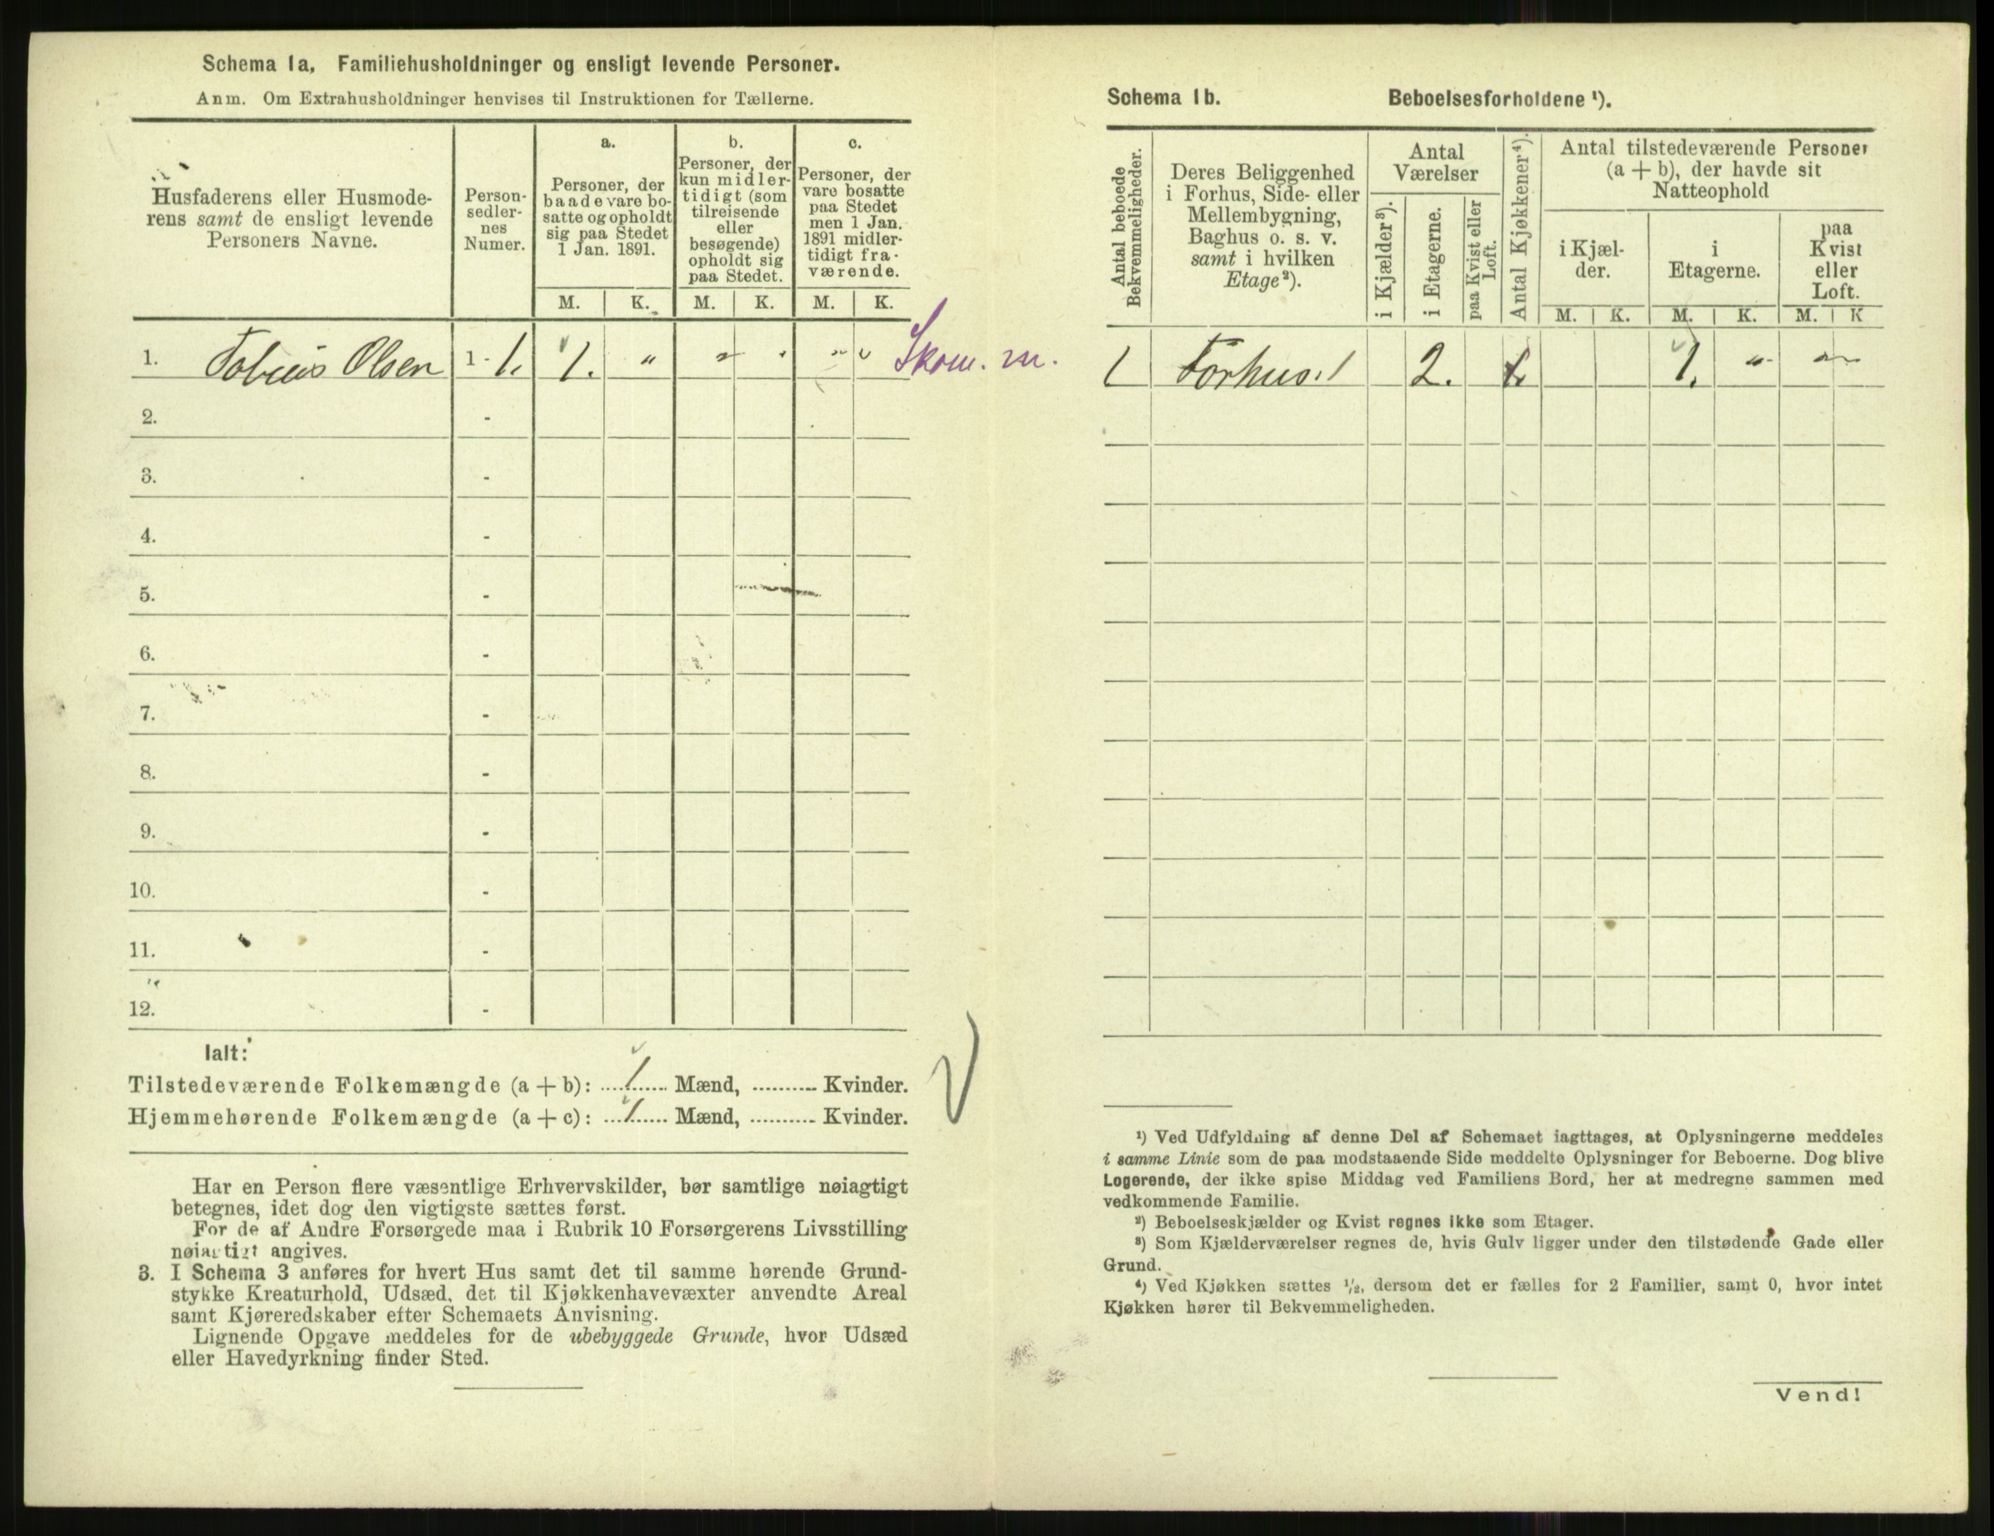 Schema 1a. Familiehusholdninger og ensligt levende Personer.
Anm. Om Extrahusholdninger henvises til Instruktionen for Tællerne.
Husfaderens eller Husmode-
rens samt de ensligt levende
Personers Navne.
Person-
sedler-
nes
Numer.
a.
Personer, der
baade vare bo-
satte og opholdt
sig paa Stedet
1 Jan. 1891.
b.
Personer, der
kun midler-
tidigt (som
tilreisende
eller
besøgende)
opholdt sig
paa Stedet.
c.
Personer, der
vare bosatte
paa Stedet
men 1 Jan.
1891 midler-
tidigt fra-
værende.
M. K. M. K. M. K.
1. Tobias Olsen 1 - 1. 1. " " " " " Skom. m.
2. -
3. -
4. -
5. -
6. -
7. -
8. -
9. -
10. -
11. -
12. -
Ialt:
Tilstedeværende Folkemængde (a + b): 1 Mænd, .......... Kvinder.
Hjemmehørende Folkemængde (a + c): 1 Mænd, .......... Kvinder.
Har en Person flere væsentlige Erhvervskilder, bør samtlige nøiagtigt
betegnes, idet dog den vigtigste sættes først.
For de af Andre Forsørgede maa i Rubrik 10 Forsørgerens Livsstilling
nøiagtigt angives.
3. I Schema 3 anføres for hvert Hus samt det til samme hørende Grund-
stykke Kreaturhold, Udsæd, det til Kjøkkenhavevæxter anvendte Areal
samt Kjøreredskaber efter Schemaets Anvisning.
Lignende Opgave meddeles for de ubebyggede Grunde, hvor Udsæd
eller Havedyrkning finder Sted.
Schema 1b. Beboelsesforholdene ¹).
Antal beboede
Bekvemmeligheder.
Deres Beliggenhed
i Forhus, Side- eller
Mellembygning,
Baghus o. s. v.
samt i hvilken
Etage²).
Antal
Værelser
i Kjælder³).
i Etagerne.
paa Kvist eller
Loft.
Antal Kjøkkener⁴).
Antal tilstedeværende Personer
(a + b), der havde sit
Natteophold
i Kjæl-
der.
i
Etagerne.
paa
Kvist
eller
Loft.
M. K. M. K. M. K
1 Forhus. 1 2. 1. 1. " "
¹) Ved Udfyldning af denne Del af Schemaet iagttages, at Oplysningerne meddeles
i samme Linie som de paa modstaaende Side meddelte Oplysninger for Beboerne. Dog blive
Logerende, der ikke spise Middag ved Familiens Bord, her at medregne sammen med
vedkommende Familie.
²) Beboelseskjælder og Kvist regnes ikke som Etager.
³) Som Kjælderværelser regnes de, hvis Gulv ligger under den tilstødende Gade eller
Grund.
⁴) Ved Kjøkken sættes ½, dersom det er fælles for 2 Familier, samt 0, hvor intet
Kjøkken hører til Bekvemmeligheden.
Vend!